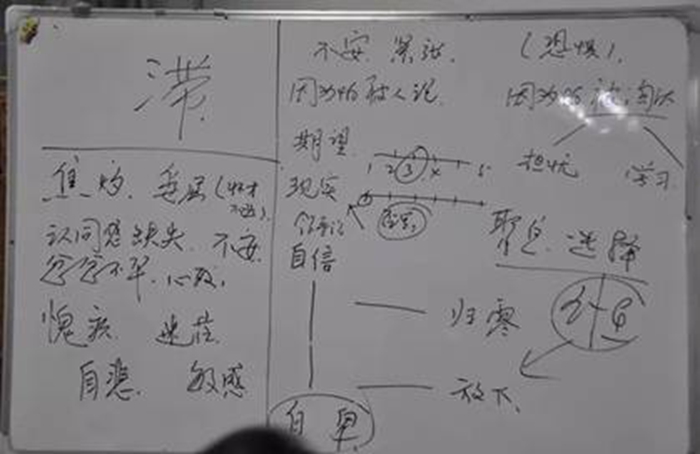 滞
焦灼、委屈(怀才不遇)、
认同感缺失、不安
忿忿不平、心疲、
愧疚 迷茫
自悲、敏感
不安 紧张、
因为怕被人说
期望
1 2 3 4 5
现实
自信
自卑
(恐惧)、
因为怕被淘汰
担忧 学习
职位 选择
归零
放下、